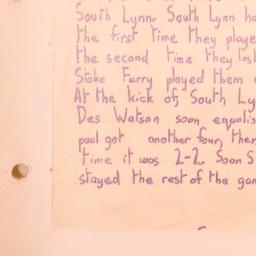 South Lynn. South Lyn ha
the first time they playe
the second time they los
Stoke Ferry played them
At the kick of, South Ly
Des Watson soon equalis
paul got another four, ther
time it was 2-2. Soon S
stayed the rest of the gam